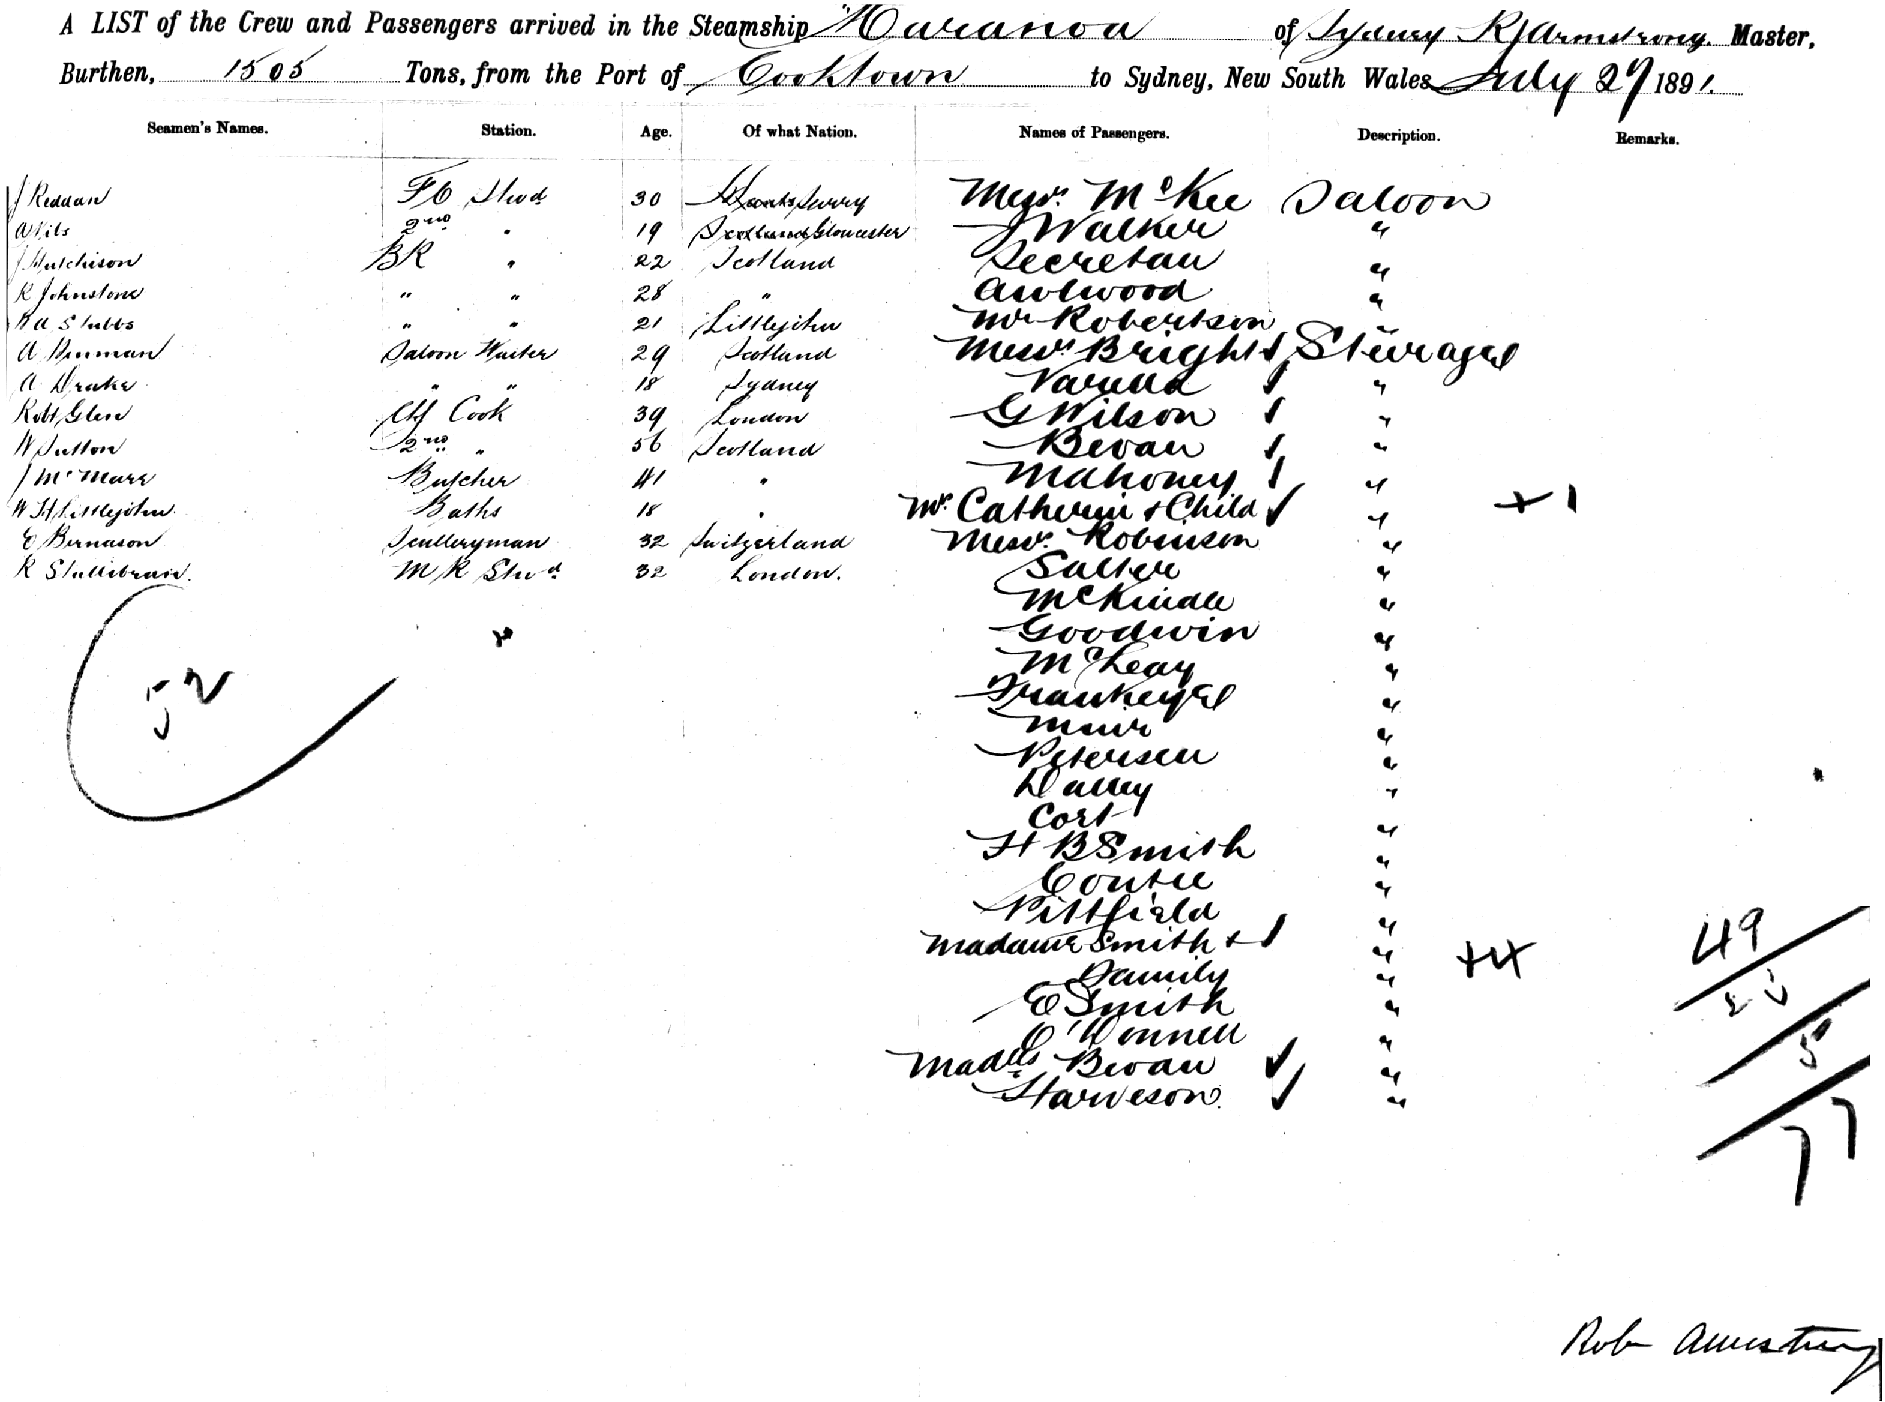 A LIST of the Crew and Passengers arrived in the Steamship Maranoa of Sydney R Armstrong. Master,
Burthen, 1505 Tons, from the Port of Cooktown to Sydney, New South Wales July 27 1891.
Seamen's Names. Station. Age. Of what Nation. Names of Passengers. Description. Remarks.
J Reddan FC Stwd 30 Surrey Messrs McKee Saloon
2nd " 19 Scotland Gloucester J Walker "
J Hutchison BR " 22 Scotland Secretan "
R Johnstone " " 28 " "
Stubbs " " 21 Littlejohn Mr Robertson "
A Saloon Waiter 29 Scotland Messrs Bright ✓ Steerage
A Drake " " 18 Sydney ✓ "
Robt Glen Chf Cook 39 London G Wilson ✓ "
W Sutton 2nd " 56 Scotland Bevan ✓ "
J McMarr Butcher 41 " Mahoney ✓ "
W H Littlejohn Baths 18 " Mr Catherin & Child ✓ " + 1
E Bernason Sculleryman 32 Switzerland Messrs Robinson "
R M R Stwd 32 London. Salter "
McKindle "
Goodwin "
McLeay "
"
Muir "
52 Petersen "
Dalley "
Cort "
H B Smith "
Coutie "
Pittfield "
Madame Smith & ✓ " +4 49
Family "
E Smith "
O'Donnell " 5
Madlls Bevan ✓ "
Harveson. ✓ " 77
Rob Armstrong